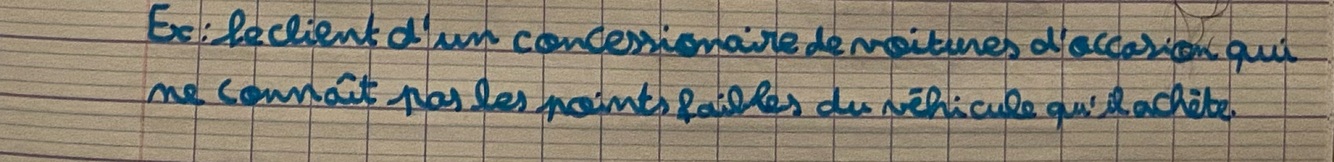 Ex : le client d'un concessionnaire de voitures d'occasion qui
ne connaît pas les points faibles du véhicule qu'il achète.